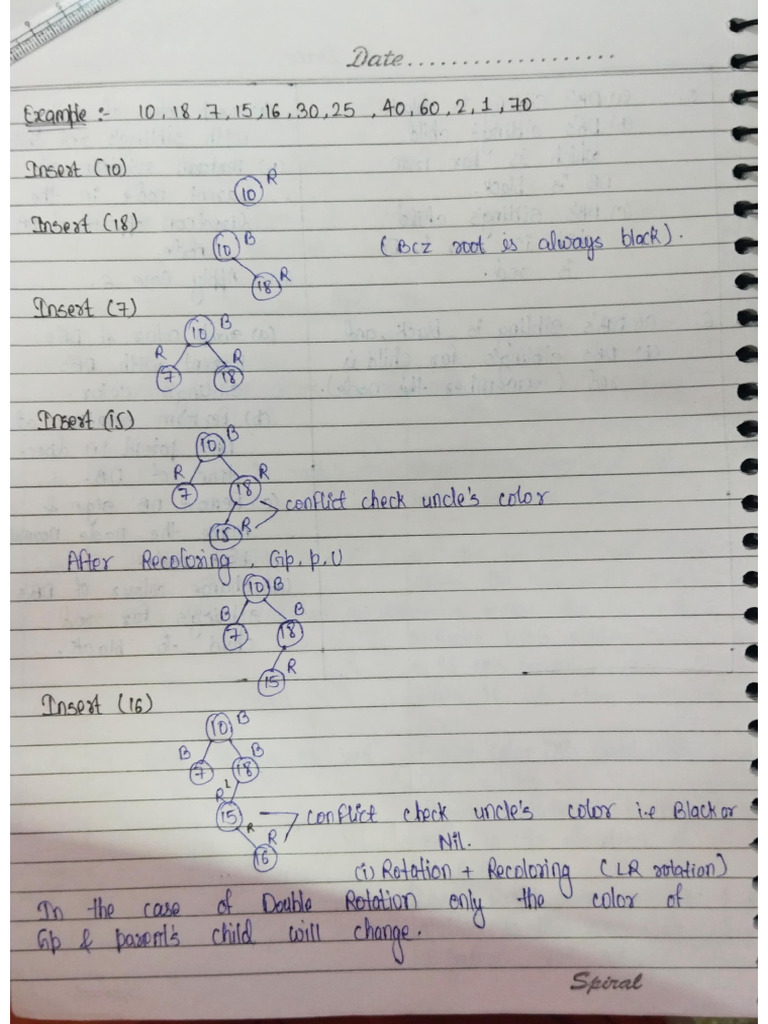 Date....................
Example :- 10, 18, 7, 15, 16, 30, 25 , 40, 60, 2, 1, 70
Insert (10)
10 R
Insert (18)
10 B (Bcz root is always black).
18 R
Insert (7)
10 B
R R
7 18
Insert (15)
10 B
R R
7 18
conflict check uncle's color
15 R
After Recoloring, Gp, p, U
10 B
B B
7 18
R
15
Insert (16)
10 B
B B
7 18
R L
15 conflict check uncle's color i.e Black or
R R
16 Nil.
(i) Rotation + Recoloring (LR rotation)
In the case of Double Rotation only the color of
Gp & parent's child will change.
Spiral